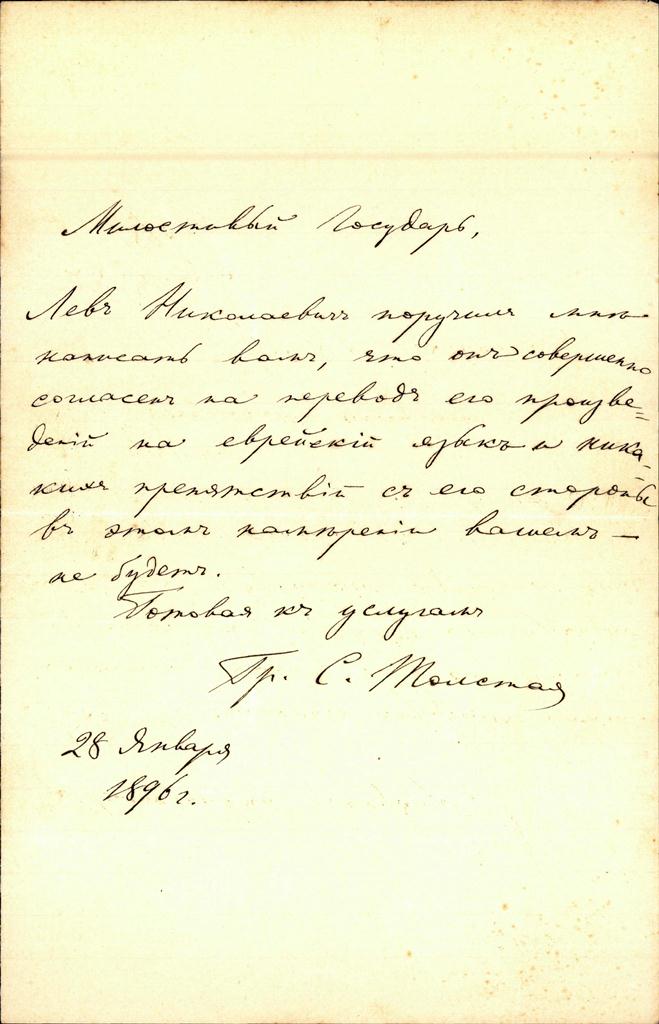 Милостивый Государь,
Левъ Николаевичъ поручилъ мнѣ
написать вамъ, что онъ совершенно
согласенъ на переводъ его произве=
деній на еврейскій языкъ и ника=
кихъ препятствій съ его стороны
въ этомъ намѣреніи вашемъ —
не будетъ.
Готовая къ услугамъ
Гр. С. Толстая
28 Января
1896 г.